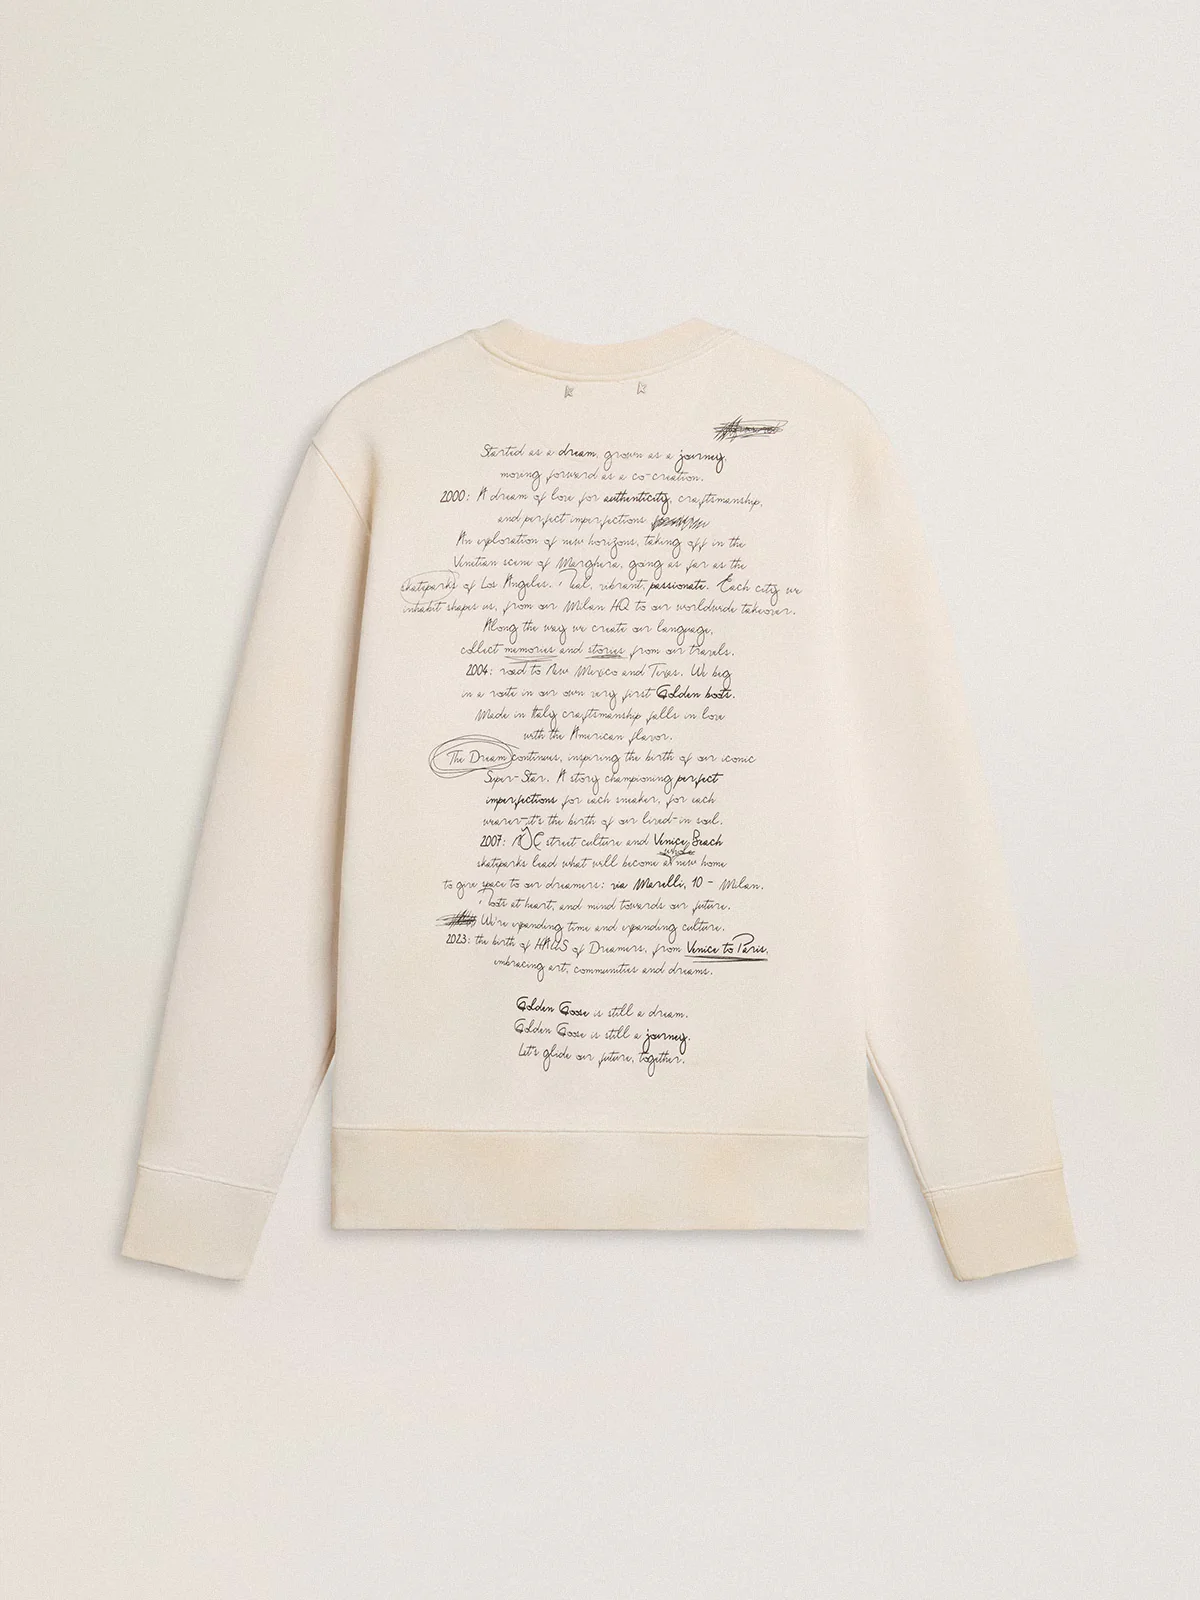 Started as a dream, grown as a journey,
moving forward as a co-creation.
2000: A dream of love for authenticity, craftsmanship,
and perfect imperfections
An exploration of new horizons, taking off in the
Venitian scene of Marghera, going as far as the
skateparks of Los Angeles. Real, vibrant, passionate. Each city we
inhabit shapes us, from our Milan HQ to our worldwide takeover.
Along the way we create our language,
collect memories and stories from our travels.
2004: road to New Mexico and Texas. We beg
in a route in our own very first Golden boots.
Made in Italy craftsmanship falls in love
with the American flavor.
The Dream continues, inspiring the birth of our iconic
Super-Star. A story championing perfect
imperfections for each sneaker, for each
wearer-it's the birth of our lived-in soul.
2007: NYC street culture and Venice Beach
whole
skateparks lead what will become a new home
to give space to our dreamers: via Morelli, 10 - Milan.
Roots at heart, and mind towards our future.
We're expanding time and expanding culture.
2023: the birth of HAUS of Dreamers, from Venice to Paris,
embracing art, communities and dreams.
Golden Goose is still a dream.
Golden Goose is still a journey.
Let's glide our future, together.